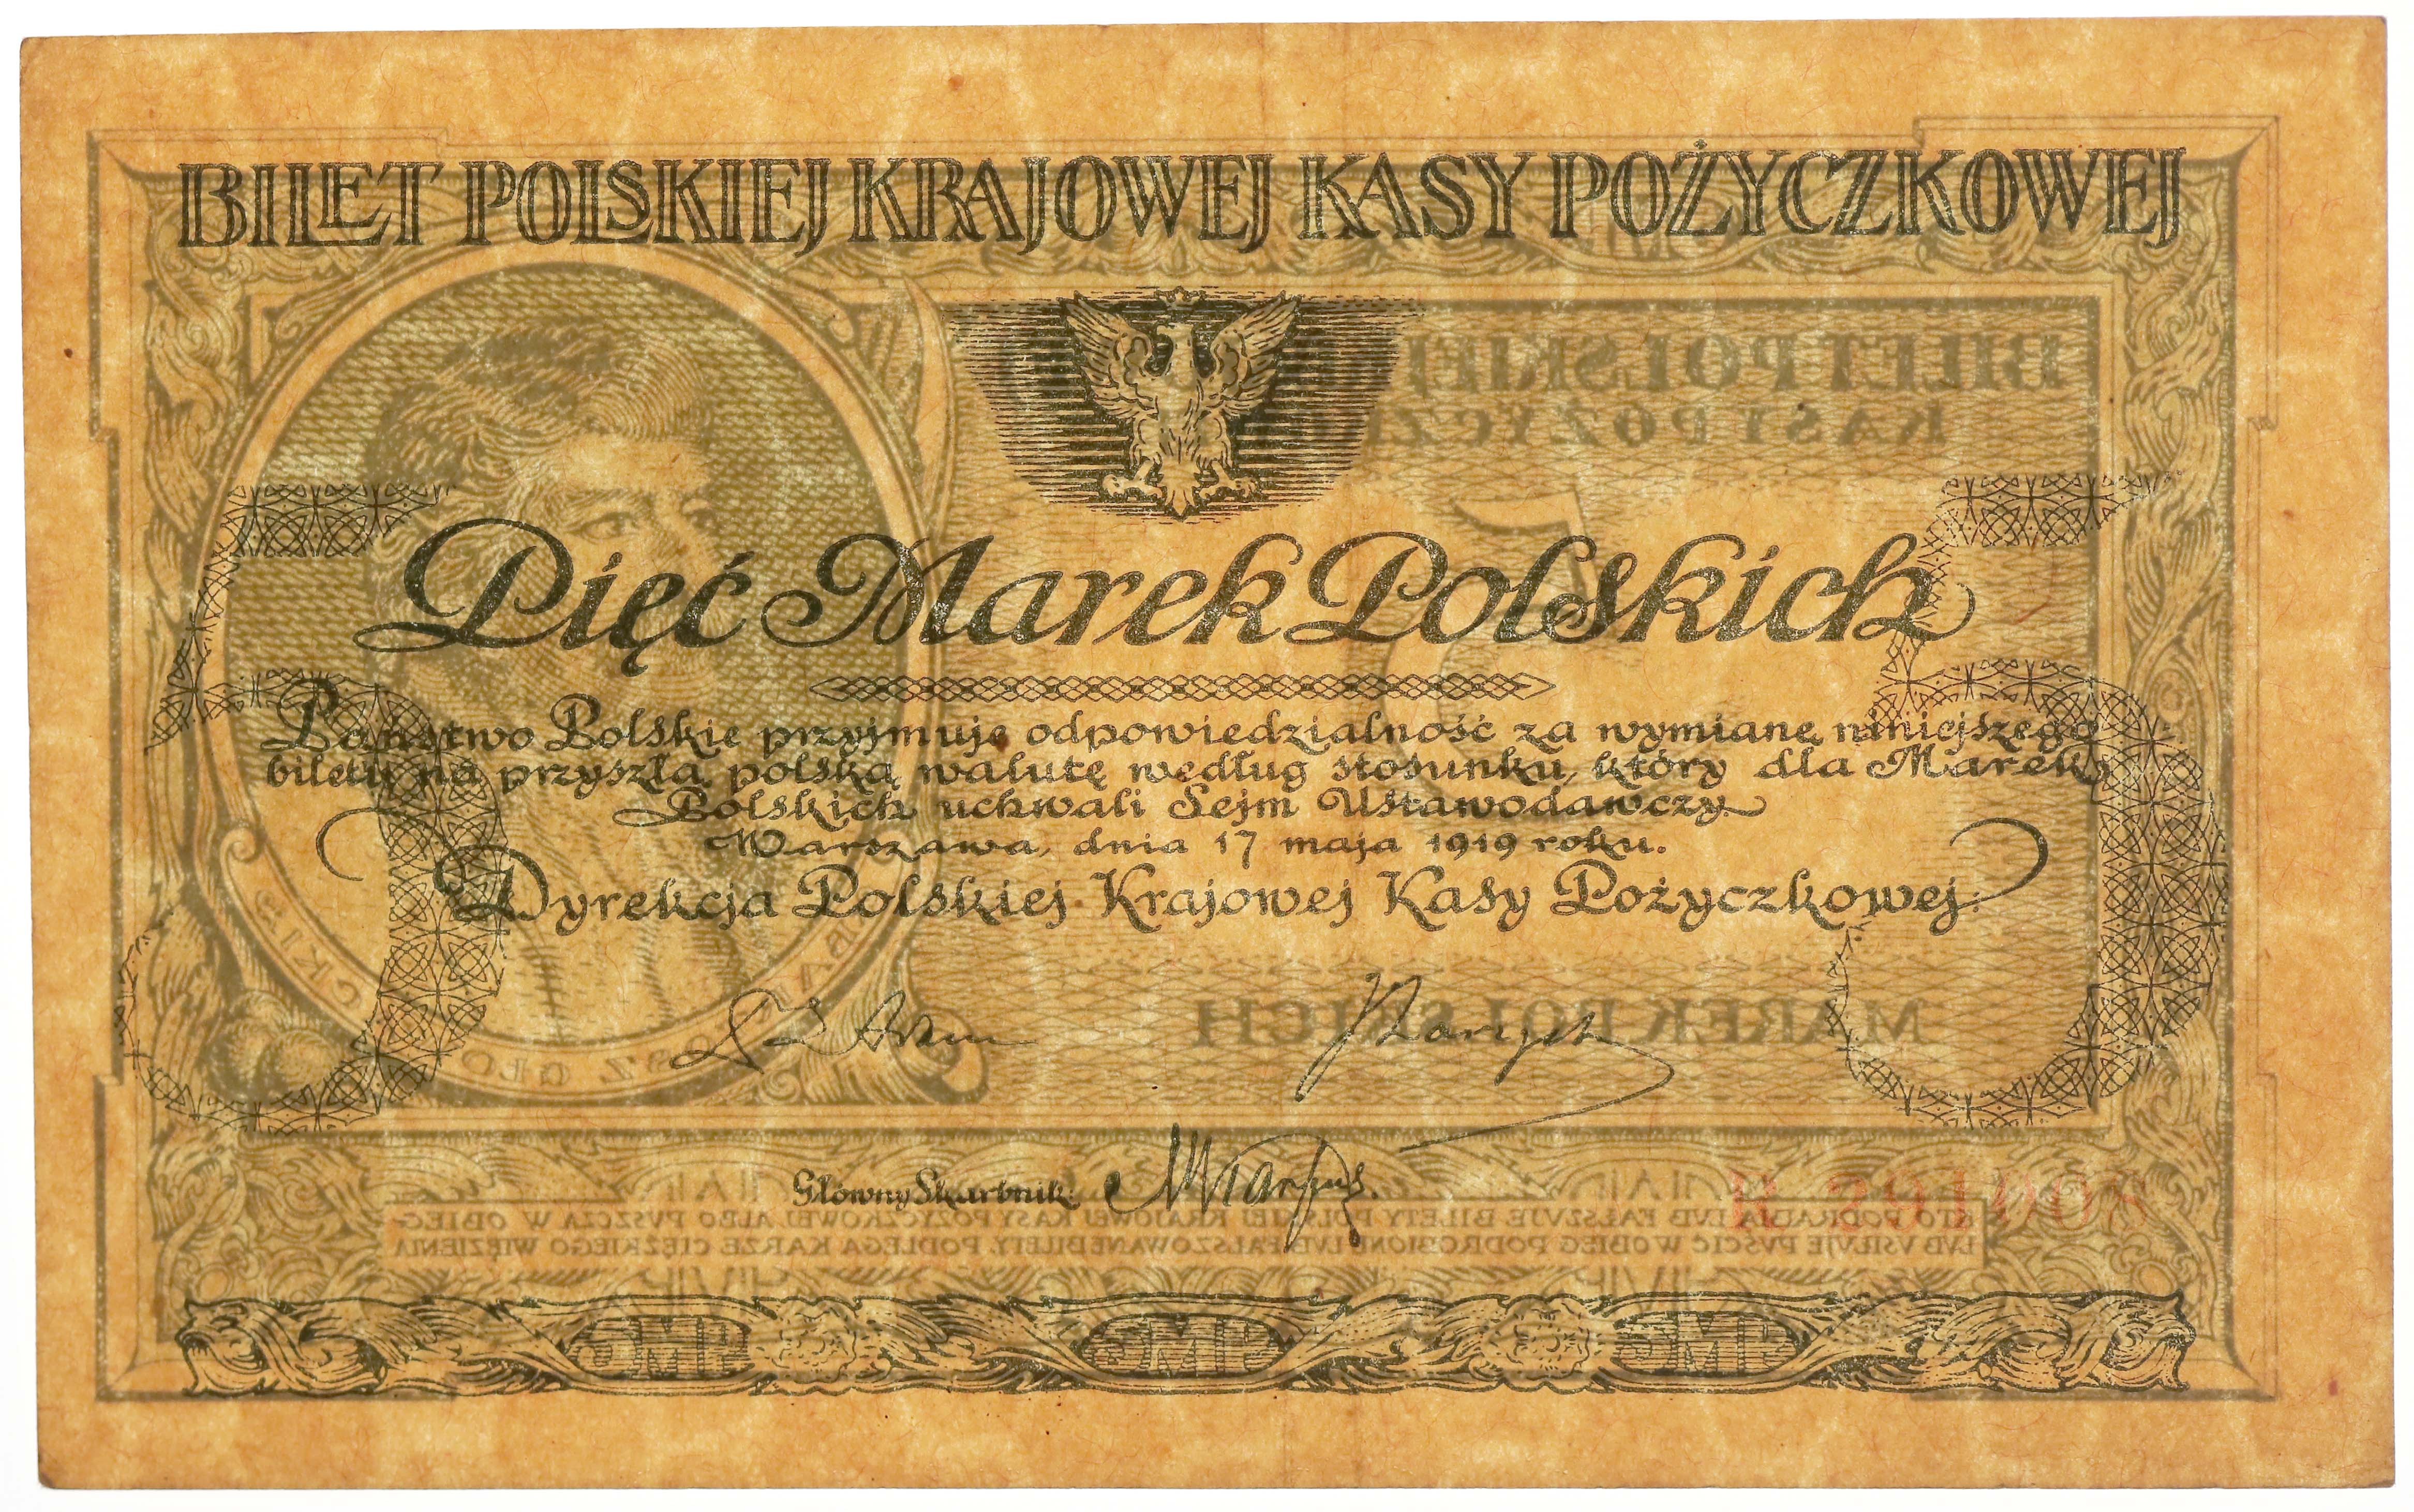 BILET POLSKIEJ KRAJOWEJ KASY POŻYCZKOWEJ
BILET POLSKIEJ
KASY POŻYCZ
5
5
5
Pięć Marek Polskich
Państwo Polskie przyjmuje odpowiedzialność za wymianę niniejszego
biletu na przyszłą polską walutę według stosunku, który dla Marek
Polskich uchwali Sejm Ustawodawczy.
Warszawa, dnia 17 maja 1919 roku.
Dyrekcja Polskiej Krajowej Kasy Pożyczkowej:
MAREK POLSKICH
Główny Skarbnik:
KTO PODRABIA LVB FAŁSZVJE BILETY POLSKIEJ KRAJOWEJ KASY POŻYCZKOWEJ ALBO PVSZCZA W OBIEG
LVB VSIŁVJE PVŚCIĆ W OBIEG PODROBIONE LVB FAŁSZOWANE BILETY, PODLEGA KARZE CIĘŻKIEGO WIĘZIENIA
5MP 5MP 5MP